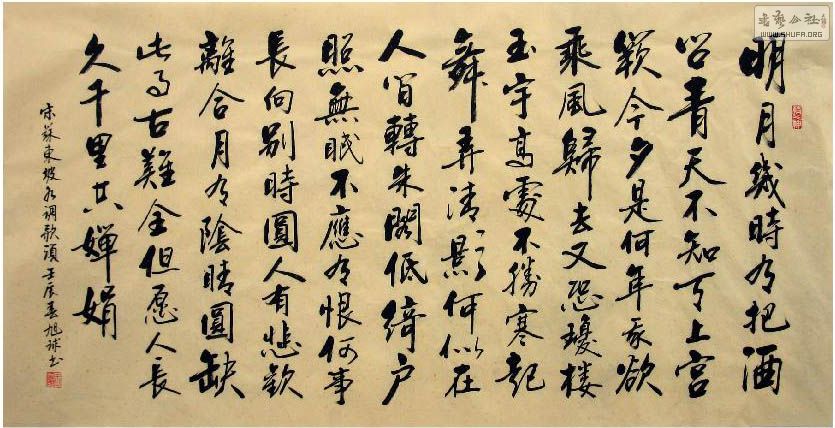 明月幾時有把酒
問青天不知天上宮
闕今夕是何年我欲
乘風歸去又恐瓊樓
玉宇高處不勝寒起
舞弄清影何似在
人間轉朱閣低綺户
照無眠不應有恨何事
長向别時圓人有悲歡
離合月有陰晴圓缺
此事古難全但愿人長
久千里共嬋娟
宋蘇東坡水调歌頭壬辰春旭球书
WWW.SHUFA.ORG